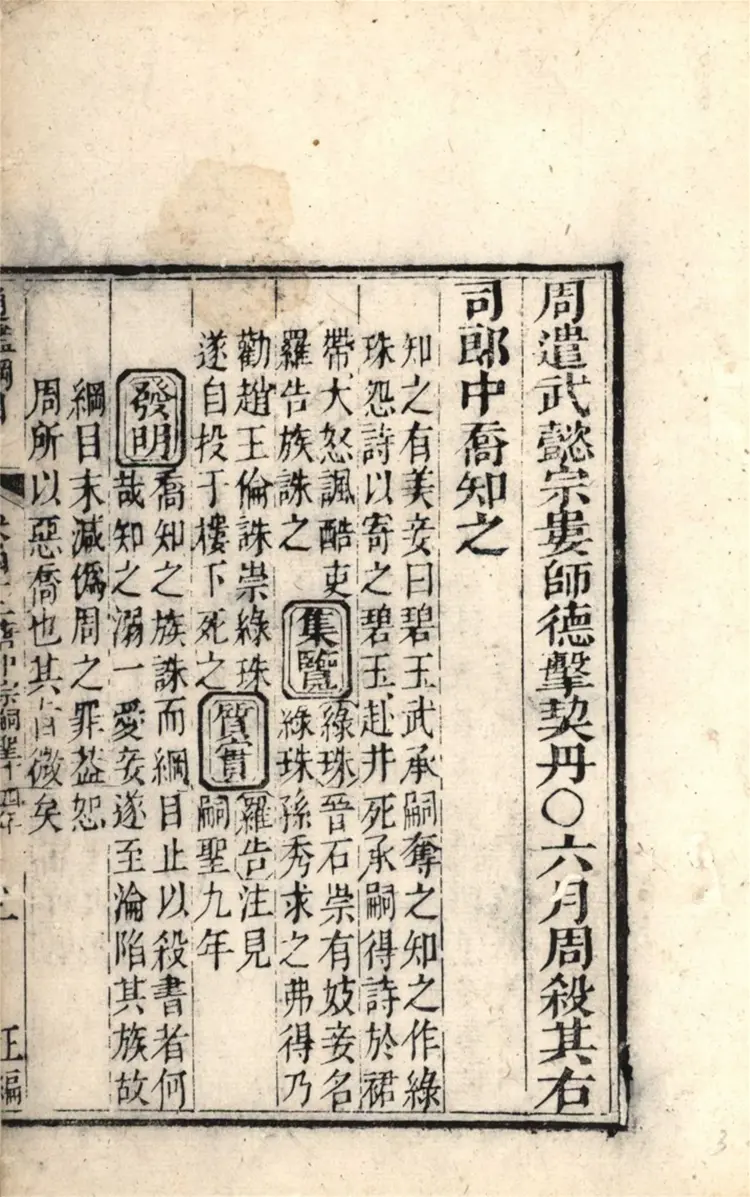 周遣武懿宗婁師德擊契丹○六月周殺其右
司郎中喬知之
知之有美妾曰碧玉武承嗣奪之知之作綠
珠怨詩以寄之碧玉赴井死承嗣得詩於裙
帶大怒諷酷吏
羅告族誅之
集覽
綠珠晉石崇有妓妾名
綠珠孫秀求之弗得乃
勸趙王倫誅崇綠珠
遂自投于樓下死之
質實
羅告注見
嗣聖九年
發明
喬知之族誅而綱目止以殺書者何
哉知之溺一愛妾遂至淪陷其族故
綱目末減僞周之罪葢恕
周所以惡喬也其旨微矣
正編